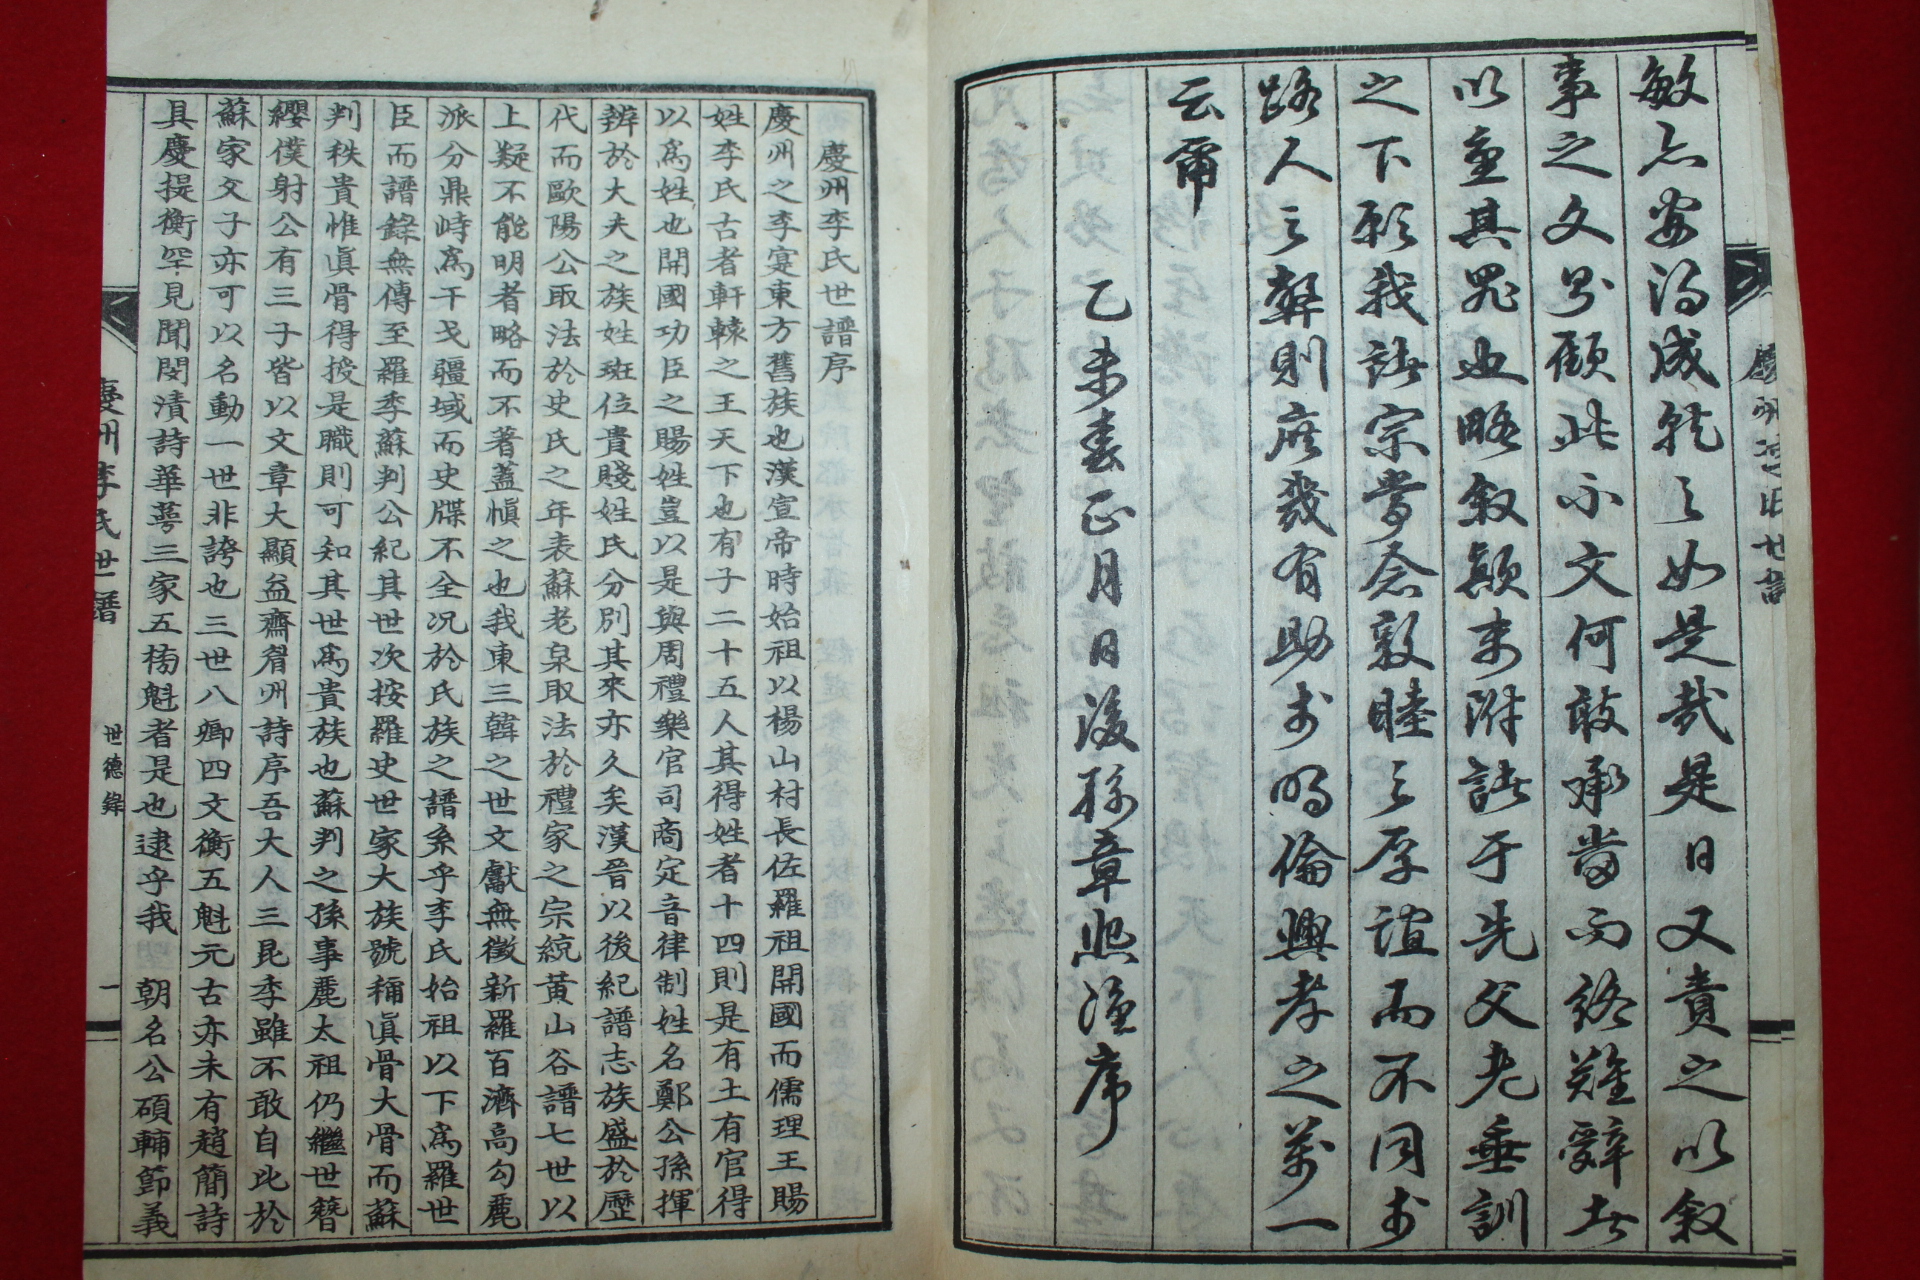 敏亦安得成就之如是哉是日又責之以敘
事之文引顧此不文何敢承當而終難辭者
以重其罪也略敘顚末附諸于先父老垂訓
之下願我諸宗常念敦睦之厚誼而不同於
路人之斁則庶幾有助於明倫興孝之萬一
云爾
乙未春正月日後孫章熙謹序
慶州李氏世譜
慶州李氏世譜序
慶州之李寔東方舊族也漢宣帝時始祖以楊山村長佐羅祖開國而儒理王賜
姓李氏古者軒轅之王天下也有子二十五人其得姓者十四則是有土有官得
以爲姓也開國功臣之賜姓豈以是與周禮樂官司商定音律制姓名鄭公孫揮
辨於大夫之族姓班位貴賤姓氏分別其來亦久矣漢晉以後紀譜志族盛於歷
代而歐陽公取法於史氏之年表蘇老泉取法於禮家之宗統黃山谷譜七世以
上疑不能明者略而不著蓋愼之也我東三韓之世文獻無徵新羅百濟高勾麗
派分鼎峙爲干戈疆域而史牒不全况於氏族之譜系乎李氏始祖以下爲羅世
臣而譜錄無傳至羅季蘇判公紀其世次按羅史世家大族號稱眞骨大骨而蘇
判秩貴惟眞骨得授是職則可知其世爲貴族也蘇判之孫事麗太祖仍繼世簪
纓僕射公有三子皆以文章大顯益齋眉州詩序吾大人三昆季雖不敢自比於
蘇家父子亦可以名動一世非誇也三世八卿四文衡五魁元古亦未有趙簡詩
具慶提衡罕見聞閔漬詩華萼三家五榜魁者是也逮乎我 朝名公碩輔節義
慶州李氏世譜
世德錄
一